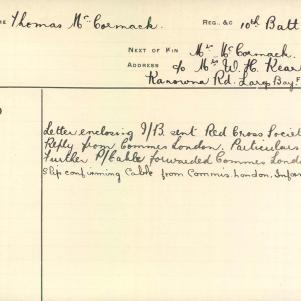 ME Thomas McCormack. REG., &C 10th Batt
NEXT OF KIN Mr McCormack.
ADDRESS c/o Mrs W. H. Kear
Kanowna Rd. Largs Bay
Letter enclosing I/B. sent Red Cross Societ
Reply from Commes London. Particulars
Further P/Cable forwarded Commes Londo
Slip confirming Cable from Commis. London. Infor